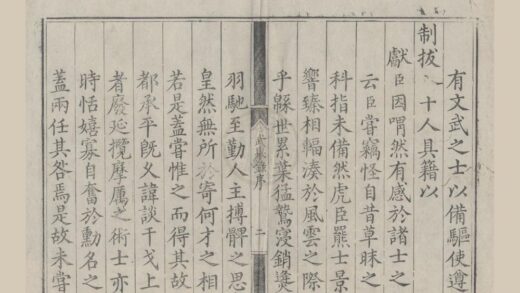 有文武之士以備驅使遵
制拔 十人具籍以
獻臣因喟然有感於諸士之
云臣嘗竊怪自昔草昧之
科指未備然虎臣羆士景
響臻相輻湊於風雲之際
乎繇世累葉猛鷙寖銷
羽馳至勤人主搏髀之思
皇然無所於寄何才之相
若是蓋嘗惟之而得其故
都承平旣乆諱談干戈上
者廢延攬摩厲之術士亦
時恬嬉寡自奮於勳名之
蓋兩任其咎焉是故未嘗